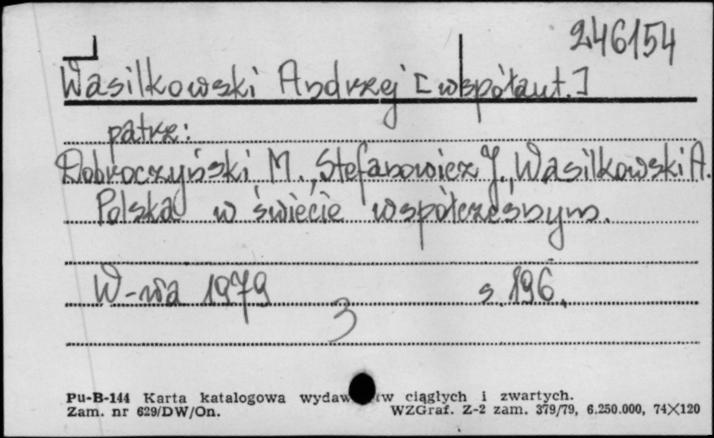 246154
Wasilkowski Andrzej [współaut.]
patrz:
Dobroczyński M., Stefanowicz J., Wasilkowski A.
Polska w świecie współczesnym.
W-wa 1979 s. 196.
3
Pu-B-144 Karta katalogowa wydaw tw ciągłych i zwartych.
Zam. nr 629/DW/On. WZGraf. Z-2 zam. 379/79, 6.250.000, 74×120